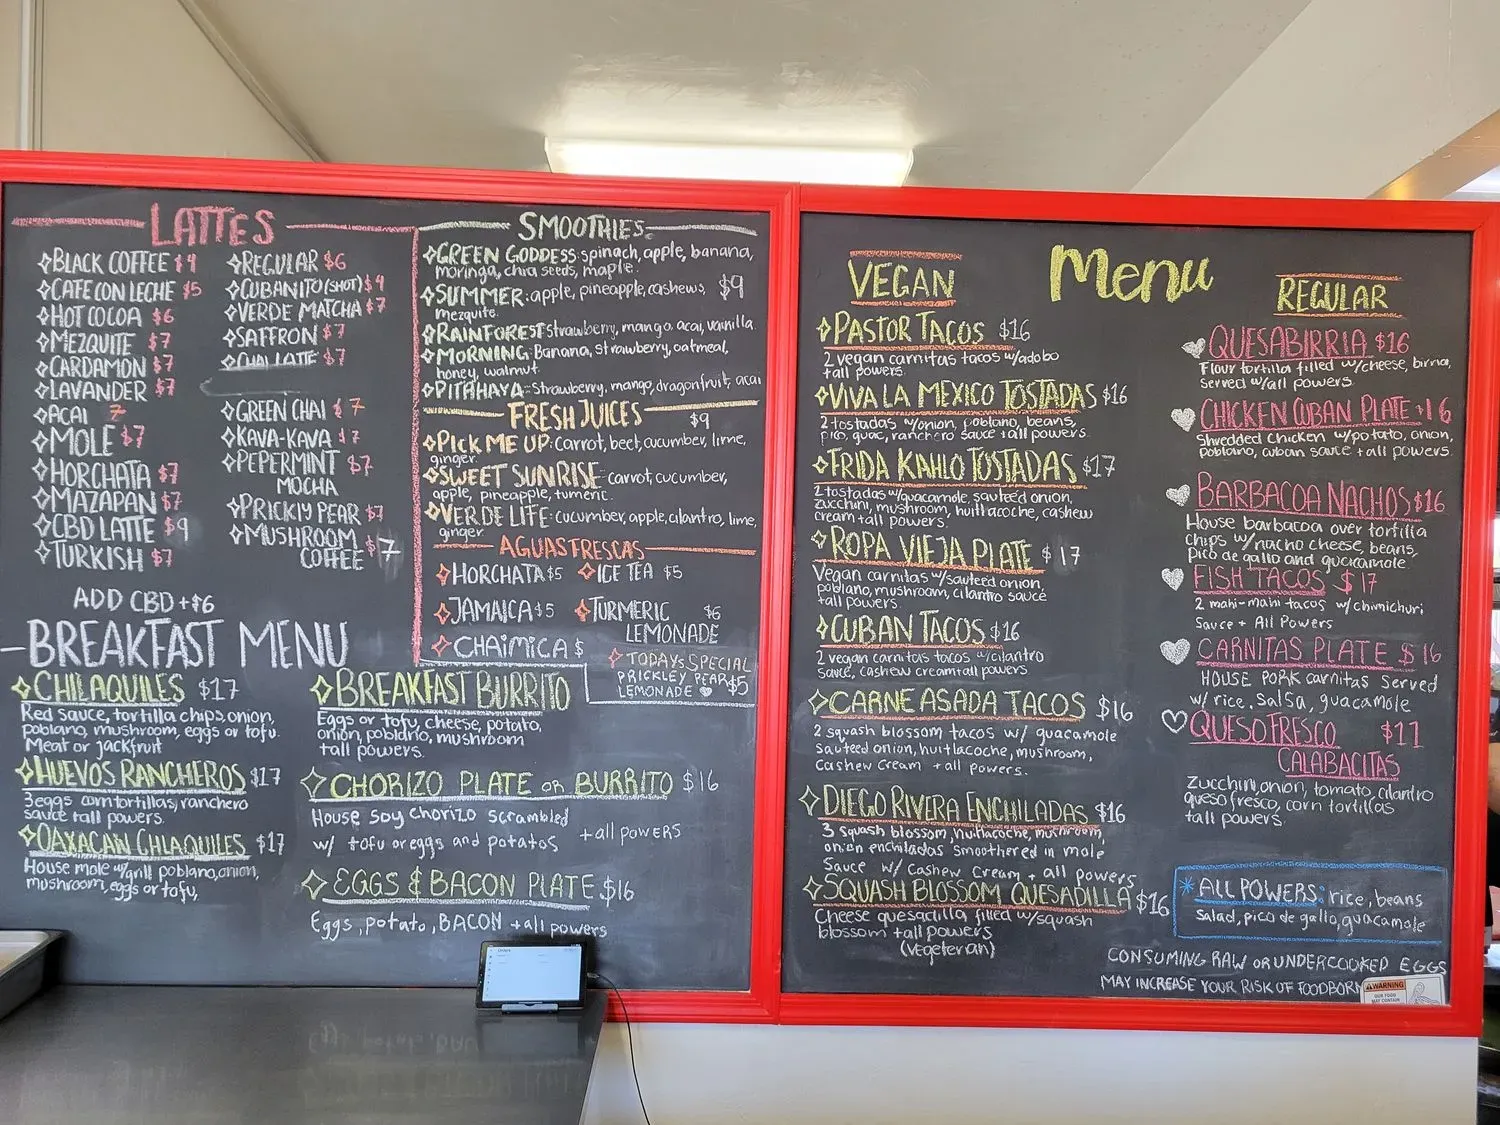 LATTES
BLACK COFFEE $4
CAFE CON LECHE $5
HOT COCOA $6
MEZQUITE $7
CARDAMON $7
LAVANDER $7
ACAI 7
MOLE $7
HORCHATA $7
MAZAPAN $7
CBD LATTE $9
TURKISH $7
REGULAR $6
CUBANITO (SHOT) $4
VERDE MATCHA $7
SAFFRON $7
CHAI LATTE $7
GREEN CHAI $7
KAVA-KAVA $7
PEPERMINT $7
MOCHA
PRICKLY PEAR $7
MUSHROOM
COFFEE $7
ADD CBD +$6
SMOOTHIES
GREEN GODDESS: spinach, apple, banana,
moringa, chia seeds, maple.
SUMMER: apple, pineapple, cashews, $9
mezquite.
RAINFOREST: strawberry, mango, acai, vanilla
MORNING: Banana, strawberry, oatmeal,
honey, walnut.
PITAHAYA: Strawberry, mango, dragonfruit, acai
FRESH JUICES $9
PICK ME UP: carrot, beet, cucumber, lime,
ginger.
SWEET SUNRISE: carrot, cucumber,
apple, pineapple, tumeric.
VERDE LIFE: cucumber, apple, cilantro, lime,
ginger.
AGUAS FRESCAS
HORCHATA $5 ICE TEA $5
JAMAICA $5 TURMERIC $6
LEMONADE
CHAIMICA $
TODAYS SPECIAL
PRICKLEY PEAR
LEMONADE $5
BREAKFAST MENU
CHILAQUILES $17
Red sauce, tortilla chips, onion,
poblano, mushroom, eggs or tofu.
Meat or jackfruit
HUEVO'S RANCHEROS $17
3 eggs corn tortillas, ranchero
sauce +all powers.
OAXACAN CHLAQUILES $17
House mole w/grill poblano, onion,
mushroom, eggs or tofu,
BREAKFAST BURRITO
Eggs or tofu, cheese, potato,
onion, poblano, mushroom
+all powers.
CHORIZO PLATE OR BURRITO $16
House soy chorizo scrambled
w/ tofu or eggs and potatos +all powers
EGGS & BACON PLATE $16
Eggs, potato, BACON +all powers
Menu
VEGAN
PASTOR TACOS $16
2 vegan carnitas tacos w/adobo
+all powers.
VIVA LA MEXICO TOSTADAS $16
2 tostadas w/onion, poblano, beans,
pico, guac, ranchero sauce +all powers.
FRIDA KAHLO TOSTADAS $17
2 tostadas w/guacamole, sauteed onion,
zucchini, mushroom, huitlacoche, cashew
cream +all powers.
ROPA VIEJA PLATE $17
Vegan carnitas w/sauteed onion,
poblano, mushroom, cilantro sauce
+all powers.
CUBAN TACOS $16
2 vegan carnitas tacos w/cilantro
sauce, cashew cream +all powers
CARNE ASADA TACOS $16
2 squash blossom tacos w/ guacamole
sauteed onion, huitlacoche, mushroom,
cashew cream +all powers.
DIEGO RIVERA ENCHILADAS $16
3 squash blossom, huitlacoche, mushroom,
onion enchiladas smoothered in mole
Sauce w/ cashew cream + all powers
SQUASH BLOSSOM QUESADILLA $16
Cheese quesadilla filled w/squash
blossom +all powers
(vegeterian)
REGULAR
QUESABIRRIA $16
Flour tortilla filled w/cheese, birria,
served w/all powers.
CHICKEN CUBAN PLATE $16
Shredded chicken w/potato, onion,
poblano, cuban sauce +all powers.
BARBACOA NACHOS $16
House barbacoa over tortilla
chips w/nacho cheese, beans,
pico de gallo and guacamole
FISH TACOS $17
2 mahi-mahi tacos w/chimichuri
Sauce + All Powers
CARNITAS PLATE $16
HOUSE PORK carnitas served
w/ rice, salsa, guacamole
QUESO FRESCO $17
CALABACITAS
Zucchini, onion, tomato, cilantro
queso fresco, corn tortillas
+all powers.
*ALL POWERS: rice, beans
Salad, pico de gallo, guacamole
CONSUMING RAW OR UNDERCOOKED EGGS
MAY INCREASE YOUR RISK OF FOODBORN
WARNING
OUR FOOD
MAY CONTAIN